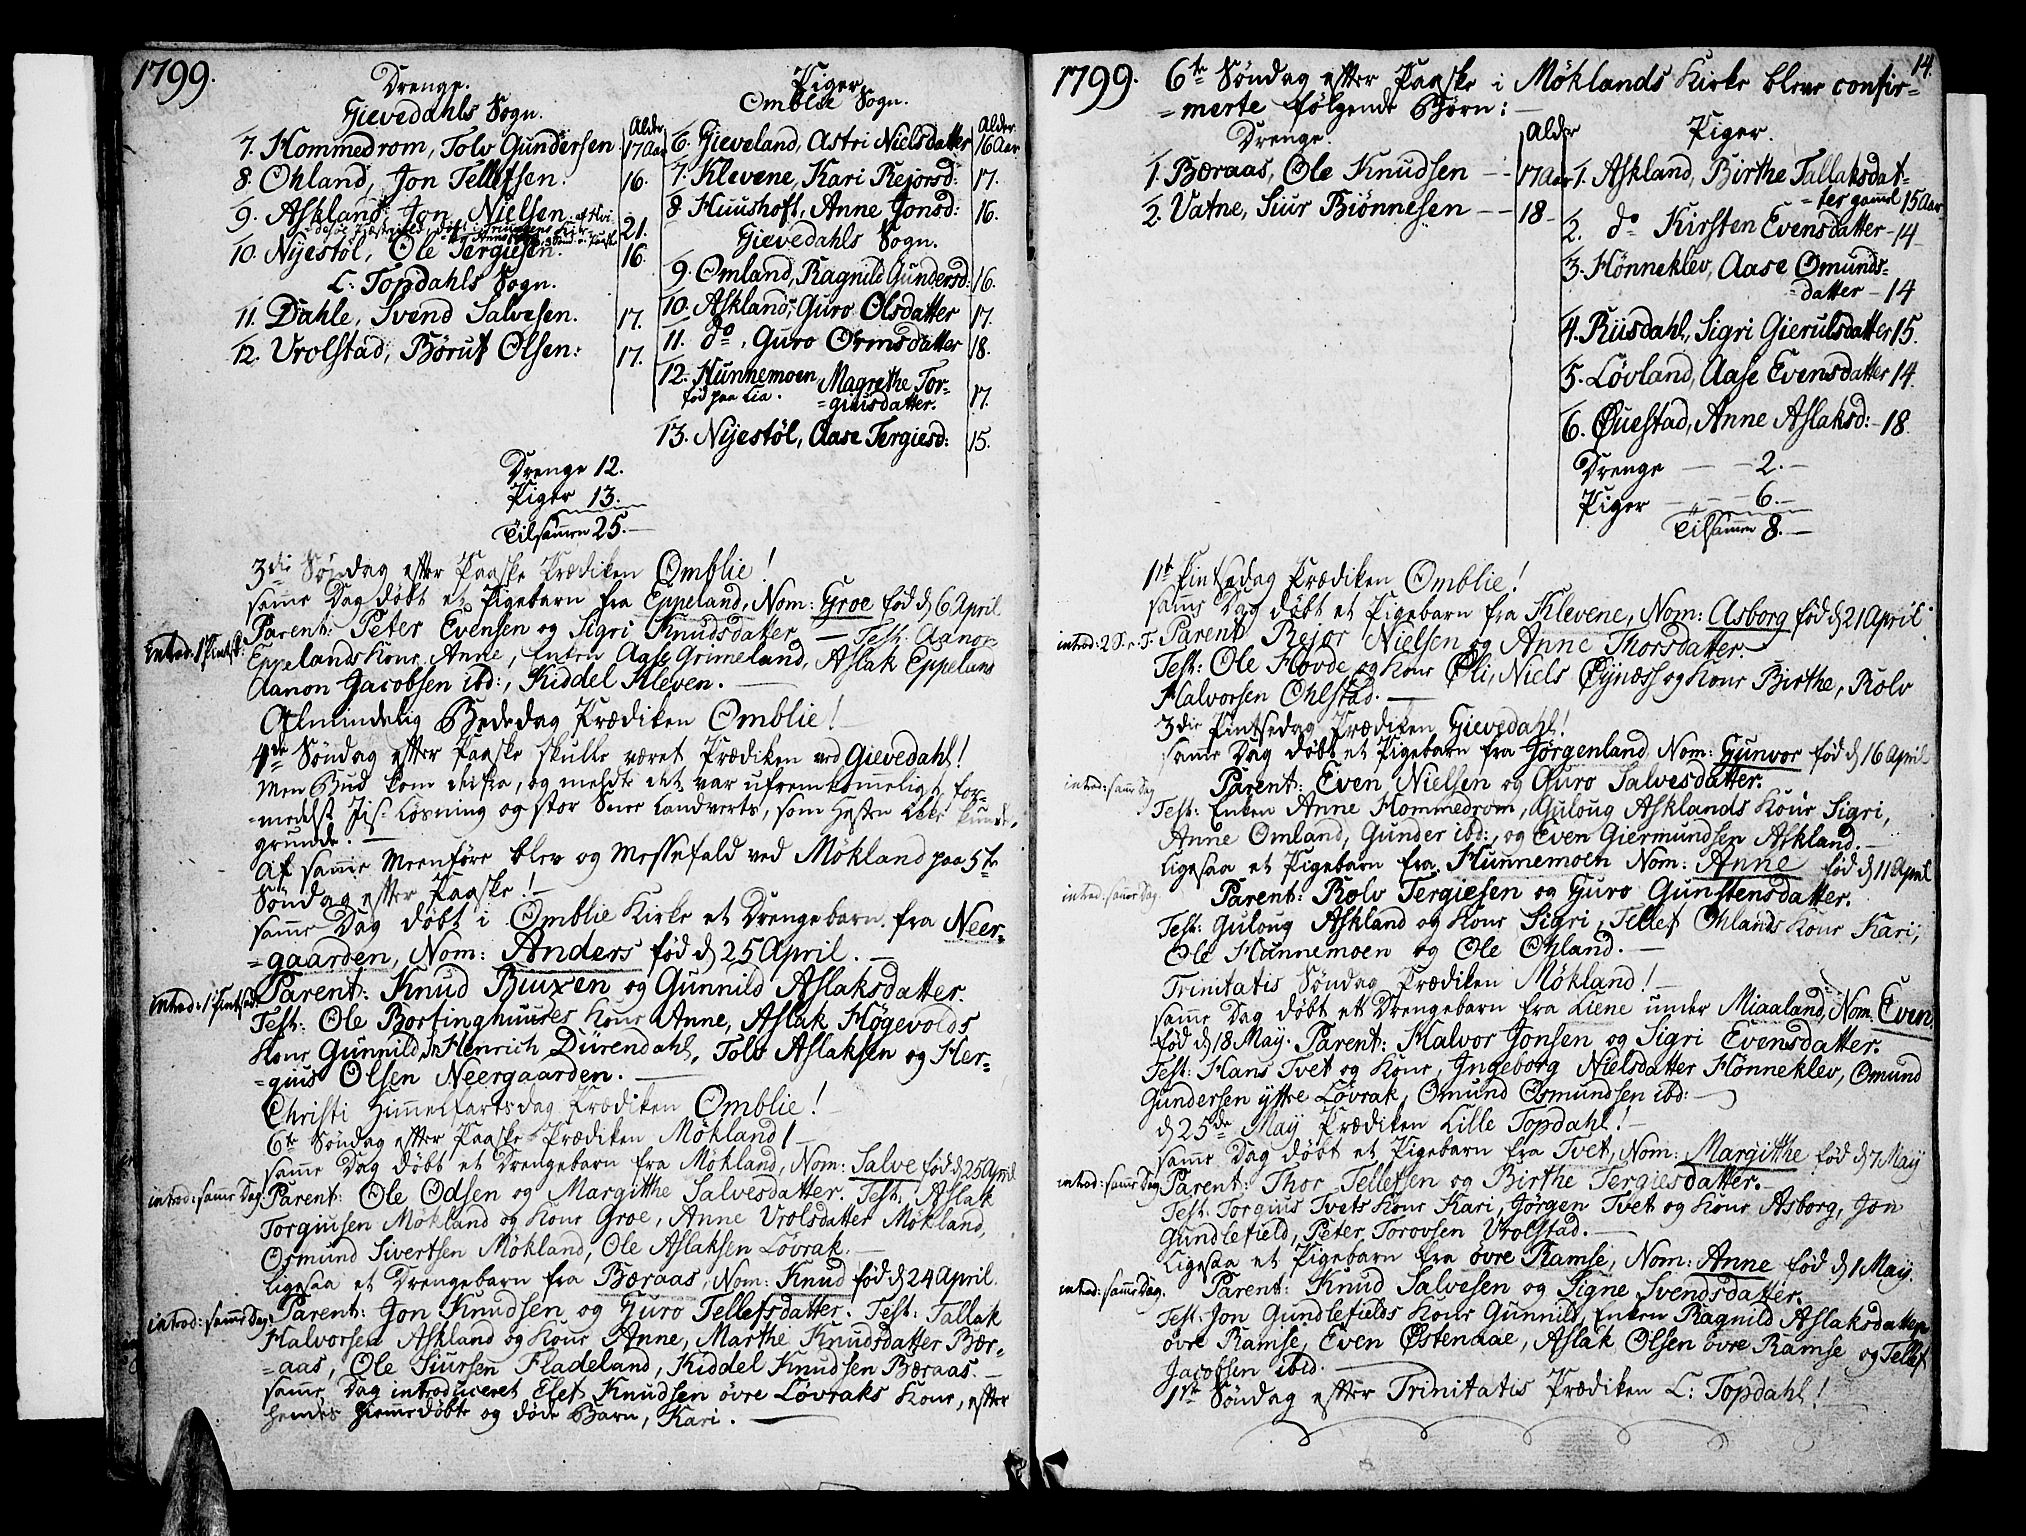 1799.
Drenge.
Gievedahls Sogn.
7. Hommedrom, Tolv Gundersen 17 Aar
8. Ohland, Jon Tellefsen. 16.
9. Askland, Jon Nielsen 21.
10. Nijestøl, Ole Tergiesen. 16.
L: Topdahls Sogn.
11. Dahle, Svend Salvesen. 17.
12. Vrolstad, Børut Olsen: 17.
Alder
Piger
Omblie Sogn.
Alder.
6. Gieveland, Astri Nielsdatter 16 Aar
7. Klevene, Kari Rejorsd: 17.
8. Huushoft, Anne Jonsd: 16.
Gievedahls Sogn.
9. Omland, Ragnild Gundersd: 16.
10. Askland, Guro Olsdatter 17.
11. do, Guro Ormsdatter 18.
12. Hunnemoen, Magrethe Tor-
fød paa Lia. =giusdatter. 17.
13. Nijestøl, Aase Tergiesd: 15.
Drenge 12.
Piger 13.
Tilsamen 25.
3die Søndag efter Paaske Prædiken Omblie!
samme Dag døbt et Pigebarn fra Eppeland, Nom: Groe fød d 6 April
Parent: Peter Evensen og Sigri Knudsdatter. — Test: Aanon
introd: 1 Pintsd:
Eppelands Kone Anne, Enken Aase Grimeland, Aslak Eppeland
Aanon Jacobsen ibd:, Kiddel Kleven.
Almindelig Bededag Prædiken Omblie!
4de Søndag efter Paaske skulle været Prædiken ved Gievedahl!
Men Bud kom derfra, og meldte det var ufremkommeligt, for-
=medelst Jis-Løsning og stor Snee Landverts, som Hesten ikke kunde
grunde. —
Af samme Meenføre blev og Messefald ved Møkland paa 5te
Søndag efter Paaske!
samme Dag døbt i Omblie Kirke et Drengebarn fra Neer-
=gaarden, Nom: Anders fød d 25 April.
Parent: Knud Buxen og Gunnild Aslaksdatter.
introd: 1 Pintsed:
Test: Ole Bortinghuuses Kone Anne, Aslak Høgevolds
Kone Gunnild, Henrich Dürendahl, Tolv Aslaksen og Her-
=gius Olsen Neergaarden.
Christi Himmelfartsdag Prædiken Omblie!
6te Søndag efter Paaske Prædiken Møkland!
samme Dag døbt et Drengebarn fra Møkland, Nom: Salve fød d 25 April
introd: samme Dag. Parent: Ole Odsen og Margitthe Salvesdatter. Test: Aslak
Torgiusen Møkland og Kone Groe, Anne Vrolsdatter Møkland,
Osmund Sivertsen Møkland, Ole Aslaksen Løvrak.
Ligesaa et Drengebarn fra Bæraas, Nom: Knud fød d 24 April.
introd: samme Dag. Parent: Jon Knudsen og Guro Tellefsdatter. Test: Tallak
Halvorsen Askland og Kone Anne, Marthe Knudsdatter Bær-
=aas, Ole Siursen Fladeland, Kiddel Knudsen Bæraas.
samme Dag introduceret Elef Knudsen øvre Løvraks Kone, efter
hendes hiemmedøbte og døde Barn, Kari.
14.
1799. 6te Søndag efter Paaske i Møklands Kirke bleve confir-
=merte følgende Børn:
Drenge. Alder
1. Bæraas, Ole Knudsen 17 Aar
2. Vatne, Siur Biønnesen 18
Piger.
1. Askland, Birthe Tallaksdat-
=ter gaml 15 Aar
2. do Kirsten Evensdatter 14
3. Hønneklev, Aase Omunds-
=datter 14
4. Riisdahl, Sigri Gierulsdatter 15.
5. Løvland, Aase Evensdatter 14.
6. Øuestad, Anne Aslaksd: 18.
Drenge 2.
Piger 6.
Tilsamen 8.
1ste Pintsedag Prædiken Omblie!
samme Dag døbt et Pigebarn fra Klevene, Nom: Asborg fød d 21 April.
introd: 2 S. e. T. Parent: Rejor Nielsen og Anne Thorsdatter.
Test: Ole Hovde og Kone Eli, Niels Eynæss og Kone Birthe, Rolv
Halvorsen Ohlstad.
3die Pintsedag Prædiken Gievedahl!
samme Dag døbt et Pigebarn fra Jørgenland, Nom: Gunvor fød d 16 April.
introd: samme Dag
Parent: Even Nielsen og Guro Salvesdatter.
Test: Enken Anne Hommedrom, Guloug Asklands Kone Sigri,
Anne Omland, Gunder ibd:, og Even Giermundsen Askland.
Ligesaa et Pigebarn fra Hunnemoen Nom: Anne fød d 11 April
introd: samme Dag. Parent: Rolv Tergiesen og Guro Gunstensdatter.
Test: Guloug Askland og Kone Sigri, Tellef Ohlands Kone Kari,
Ole Hunnemoen og Ole Ohland.
Trinitatis Søndag Prædiken Møkland!
samme Dag døbt ett Drengebarn fra Liene under Miaaland, Nom: Even
fød d 18 May. Parent: Halvor Jonsen og Sigri Evensdatter.
Test: Hans Tvet og Kone, Ingeborg Nielsdatter Hønneklev, Omund
Gundersen yttre Løvrak, Omund Osmundsen ibd:
d 25de May Prædiken Lille Topdahl!
samme Dag døbt et Pigebarn fra Tvet, Nom: Margitthe fød d 7 May
introd: samme Dag Parent: Thor Tellefsen og Birthe Tergiesdatter.
Test: Torgius Tvets Kone Kari, Jørgen Tvet og Kone Asborg, Jon
Gundlefield, Peter Torovsen Vrolstad.
Ligesaa et Pigebarn fra øvre Ramse, Nom: Anne fød d 1 May.
introd: samme Dag. Parent: Knud Salvesen og Signe Svendsdatter.
Test: Jon Gundlefields Kone Gunnild, Enken Ragnild Aslaksdatter
øvre Ramse, Even Østenaae, Aslak Olsen øvre Ramse og Tellef
Jacobsen ibid.
1ste Søndag efter Trinitatis Prædiken L: Topdahl!